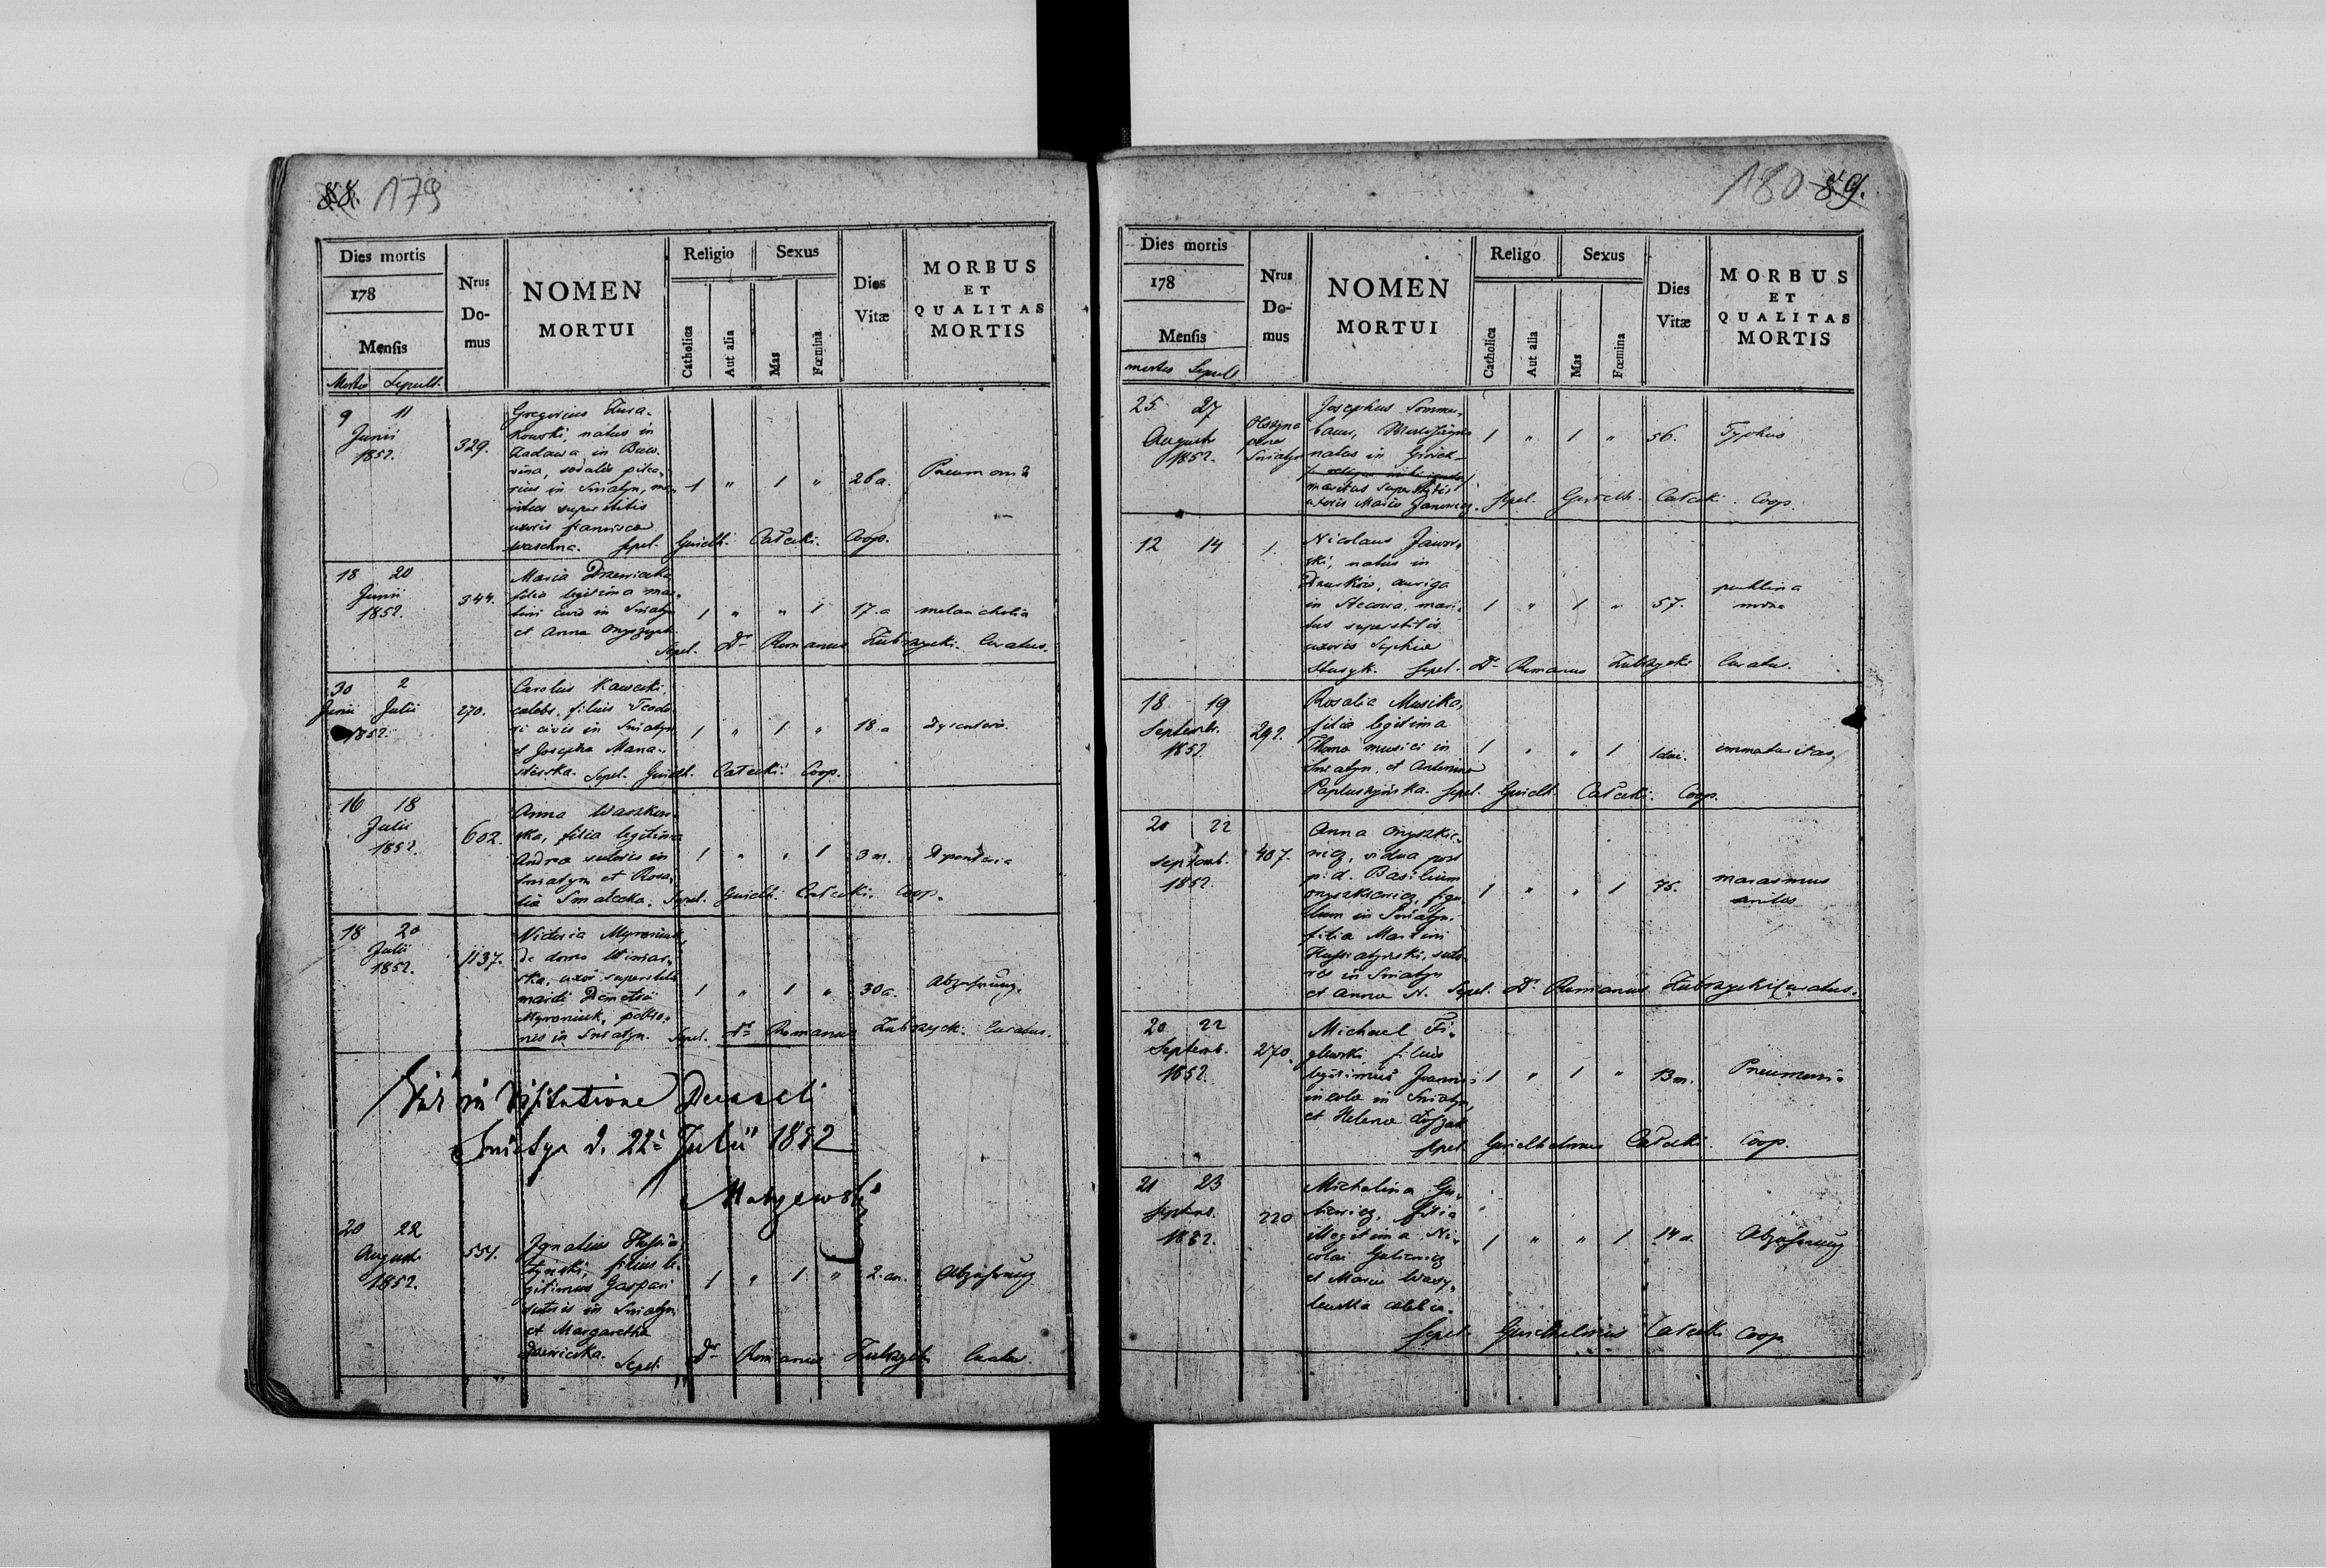 88. 179
Dies mortis
178
Mensis
Mortis Sepult.
Nrus Do-mus
NOMEN
MORTUI
Religio
Catholica
Aut alia
Sexus
Mas
Fœmina
Dies
Vitæ
MORBUS
ET
QUALITAS
MORTIS
9 11
Junii
1852.
329.
Gregorius Zura-
kowski, natus in
Radawa in Buco-
vina, sodalis pilea-
rius in Sniatyn, ma-
ritus superstitis
uxoris Francisca
Waschna. Sepel. Guielh. Całecki. Coop.
1 " 1 " 26 a.
18 20
Junii
1852.
344.
Maria Drzewiecka
filia legitima Mar-
tini civis in Sniatyn
et Anna
1 " " 1 17. a melancholia
Sepel. Dr Romanus Zubrzycki. Curatus.
30 2
Junii Julii
1852.
270.
Carolus Kawecki,
caelebs, filius Teodo-
ri civis in Sniatyn
et Josepha Mana-
sterska. Sepel. Guielh. Całecki. Coop.
1 " 1 " 18. a
16 18
Julii
1852.
602.
Anna
ska, filia legitima
Andrea sutoris in
Sniatyn et Rosa-
lia Smalecka. Sepel. Guielh. Całecki. Coop.
1 " " 1 3 m.
18 20
Julii
1852.
1137.
Victoria Myroniuk,
de domo Winiar-
ska, uxor superstitis
mariti Demetrii
Myroniuk,
nis in Sniatyn. Sepel. Dr Romanus Zubrzycki. Curatus.
1 " 1 " 30 a. Abzehrung.
in Visitatione Decanali
Sniatyn d. 22 Julii 1852
20 22
Augusti
1852.
554.
Ignatius Hussia-
tynski, filius le-
gitimus Gaspari
sutoris in Sniatyn
et Margaretha
Drzewiecka. Sepel. Dr Romanus Zubrzycki Curatus.
1 " 1 " 2. an. Abzehrung
180 89.
Dies mortis
178
Mensis
mortis Sepult
Nrus Do-mus
NOMEN
MORTUI
Religo
Catholica
Aut alia
Sexus
Mas
Fœmina
Dies
Vitæ
MORBUS
ET
QUALITAS
MORTIS
25 27
Augusti
1852.
Josephus Sommer-
bauer,
natus in
maritus superstitis
uxoris Maria Janowicz. Sepel. Guielh. Całecki. Coop.
1 " 1 " 56. Typhus
12 14
1.
Nicolaus Jawor-
ski, natus in
auriga
in Stecowa, mari-
tus superstitis
uxoris Sophia
Sepel. Dr Romanus Zubrzycki Curatus.
1 " 1 " 57.
18 19
Septemb.
1852
292.
Rosalia Musika,
filia legitima
Thoma musici in
Sniatyn, et Antonina
Papluszynska. Sepel. Guielh. Całecki. Coop.
1 " " 1 1 dei. immaturitas
20 22
Septemb.
1852.
407.
Anna Onyszkie-
wicz, vidua post
p. d. Basilium
Onyszkiewicz, figu-
lum in Sniatyn,
filia Martini
Hussiatynski, suto-
ris in Sniatyn
et Anna N. Sepel. Dr Romanus Zubrzycki Curatus.
1 " " 1 75. marasmus
20 22
Septemb.
1852.
270.
Michael Fi-
glewski filius
legitimus Joannis
incola in Sniatyn,
et Helena
Sepel. Guielhelmus Całecki. Coop.
1 " 1 " 13 m. Pneumonia
21 23
1852.
220
Michalina Gu-
tiewicz, filia
illegitima Ni-
colai Gutiewicz
et Maria Wasy-
lewska
Sepel. Guielhelmus Całecki Coop
1 " " 1 14 d. Abzehrung